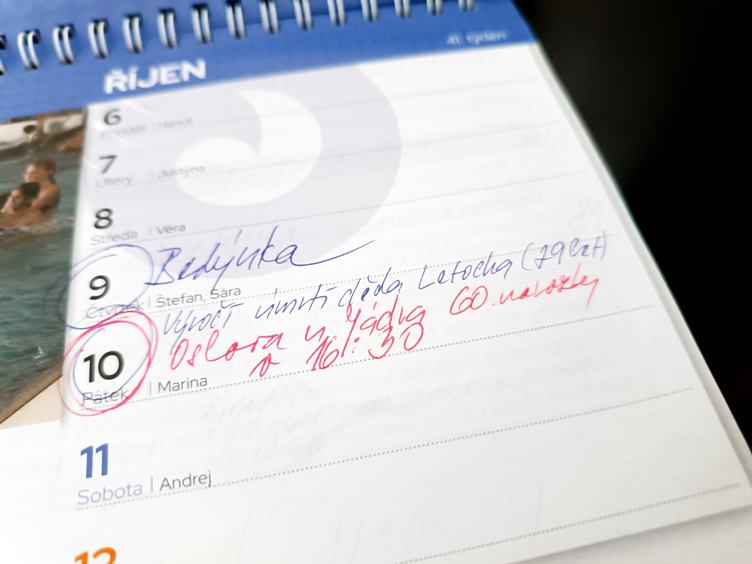 ŘÍJEN
41. týden
6
Pondělí | Hanuš
7
Úterý | Justýna
8
Středa | Věra
9
Bedýnka
Čtvrtek | Štefan, Sára
Výročí úmrtí děda Letocha (79 let)
10
Oslava u 60. narozky
v 16:30
Pátek | Marina
11
Sobota | Andrej
12